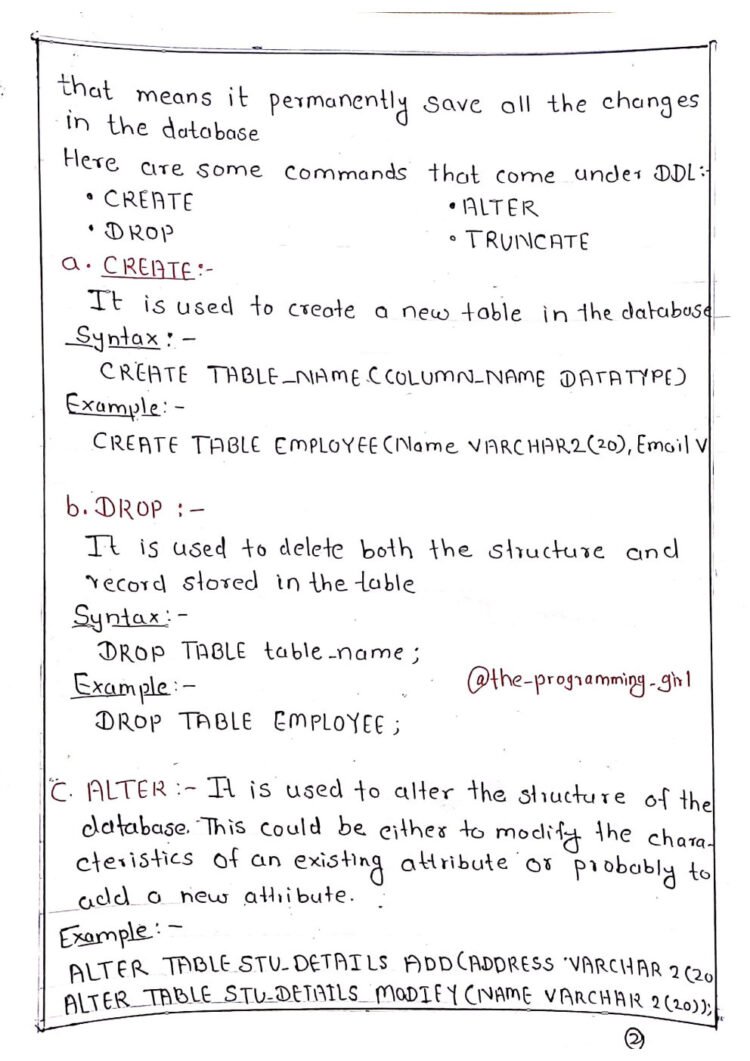 that means it permanently save all the changes
in the database
Here are some commands that come under DDL:-
• CREATE • ALTER
• DROP • TRUNCATE
a. CREATE:-
It is used to create a new table in the database
Syntax: -
CREATE TABLE_NAME (COLUMN_NAME DATATYPE)
Example: -
CREATE TABLE EMPLOYEE(Name VARCHAR2(20), Email V
b. DROP :-
It is used to delete both the structure and
record stored in the table
Syntax: -
DROP TABLE table_name ;
@the-programming-girl
Example: -
DROP TABLE EMPLOYEE ;
C. ALTER :- It is used to alter the structure of the
database. This could be either to modify the chara-
cteristics of an existing attribute or probably to
add a new attribute.
Example: -
ALTER TABLE STU_DETAILS ADD(ADDRESS VARCHAR 2(20
ALTER TABLE STU_DETAILS MODIFY (NAME VARCHAR 2(20));
2